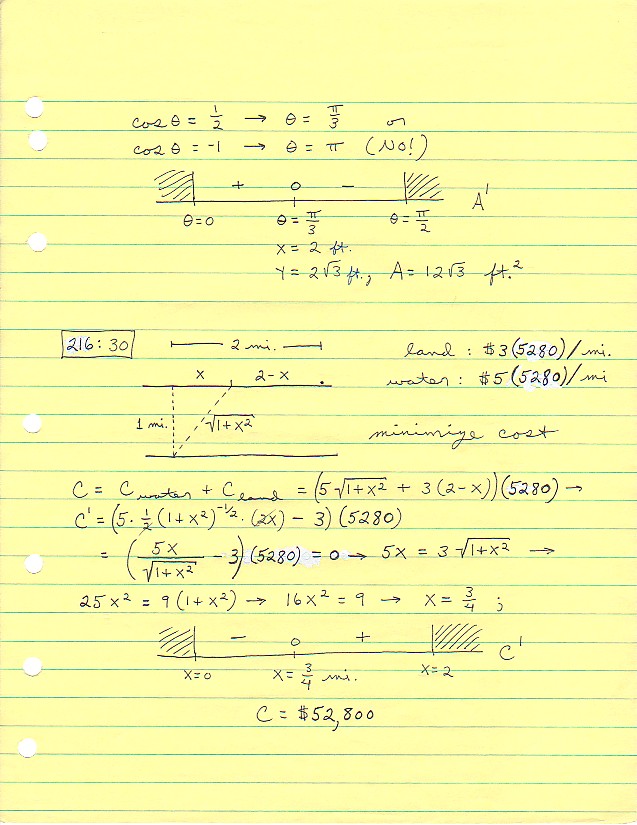 cos θ = 1/2 → θ = π/3 or
cos θ = -1 → θ = π (No!)
+ 0 - A'
θ=0 θ=π/3 θ=π/2
x = 2 ft.
Y = 2√3 ft., A = 12√3 ft.²
216:30 2 mi. land : $3(5280)/mi.
x 2-x water : $5(5280)/mi
1 mi. √1+x² minimize cost
C = C water + C land = (5√1+x² + 3(2-x))(5280) →
C' = (5·1/2(1+x²)^-1/2·(2x) - 3)(5280)
= (5x/√1+x² - 3)(5280) = 0 → 5x = 3√1+x² →
25x² = 9(1+x²) → 16x² = 9 → x = 3/4 ;
- 0 + C'
x=0 x=3/4 mi. x=2
C = $52,800